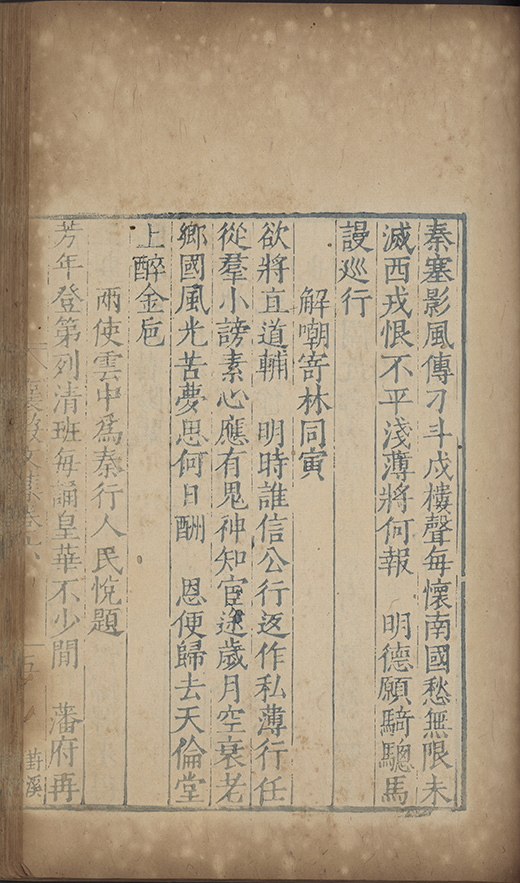 秦塞影風傳刁斗戍樓聲每懷南國愁無限未
滅西戎恨不平淺薄將何報　明德願騎驄馬
謾巡行
解嘲寄林同寅
欲將直道輔　明時誰信公行返作私薄行任
從羣小謗素心應有鬼神知宦途歲月空衰老
鄉國風光苦夢思何日酬　恩便歸去天倫堂
上醉金巵
兩使雲中爲秦行人民悅題
芳年登第列清班每誦皇華不少閒　藩府再
五
封溪